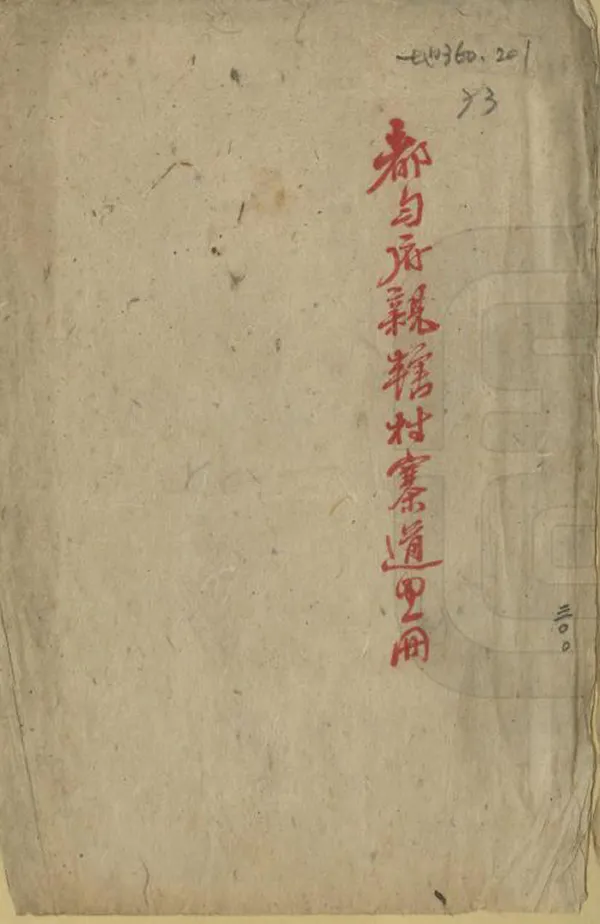 地360.201
23
都匀府親轄村寨道里冊
三〇〇